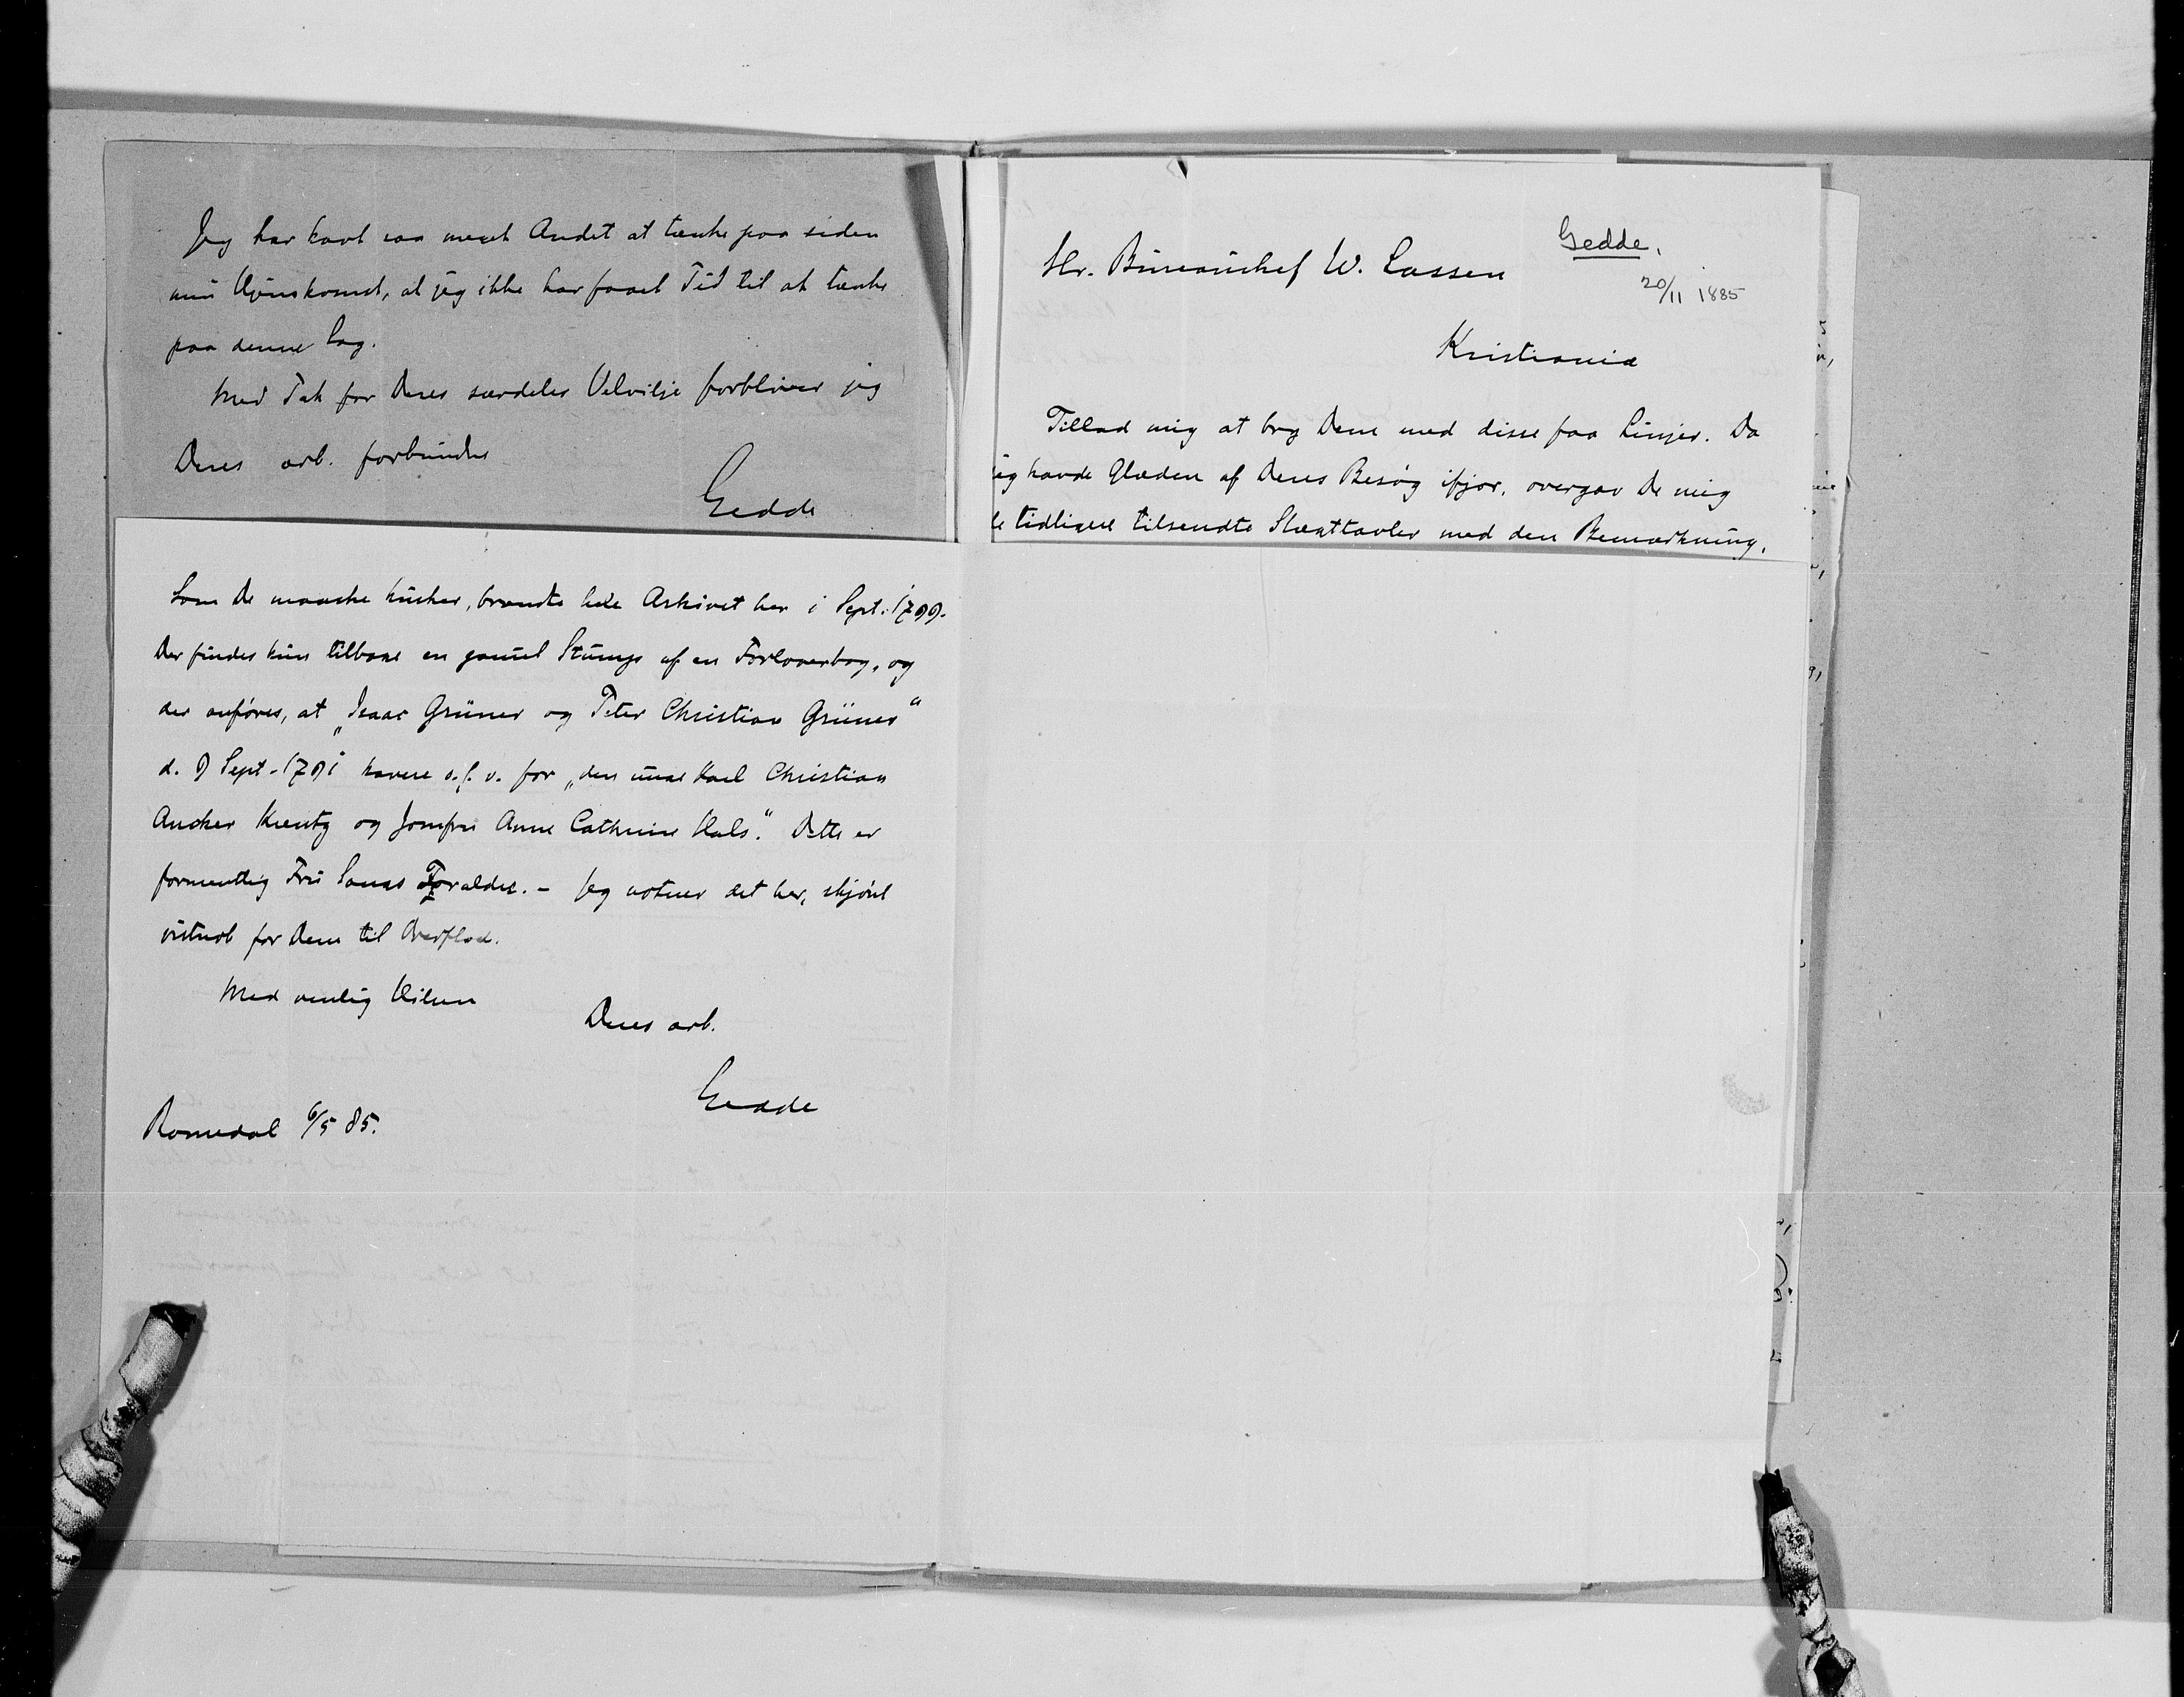 Jeg har havt saa meget Andet at tænke paa siden
min Hjemkomst, at jeg ikke har faaet Tid til at tænke
paa denne Sag.
Med Tak for Deres særdeles Velvilje forbliver jeg
Deres arb. forbundne
Gedde
Som De maaske husker, brændte hele Arkivet her i Sept. 1799.
Der findes kun tilbage en gammel Stump af en Forloverbog, og
der anføres, at „Isaac Grüner og Peter Christian Grüner“
d. 9 Sept. 1791 cavere s. f. v. for „den unge Karl Christian
Ancher Kreutz og Jomfru Anne Cathrine Hals.“ Dette er
formentlig Fru Forældre. – Jeg noterer det her, skjønt
vistnok for Dem til Overflod.
Med venlig Hilsen
Deres arb.
Gedde
Romedal 6/5 85.
Gedde.
20/11 1885
Hr. Bureauchef W. Lassen
Kristiania
Tillad mig at bry Dem med disse faa Linjer. Da
jeg havde Glæden af Deres Besøg ifjor, overgav De mig
de tidligere tilsendte Slægttavler med den Bemærkning,